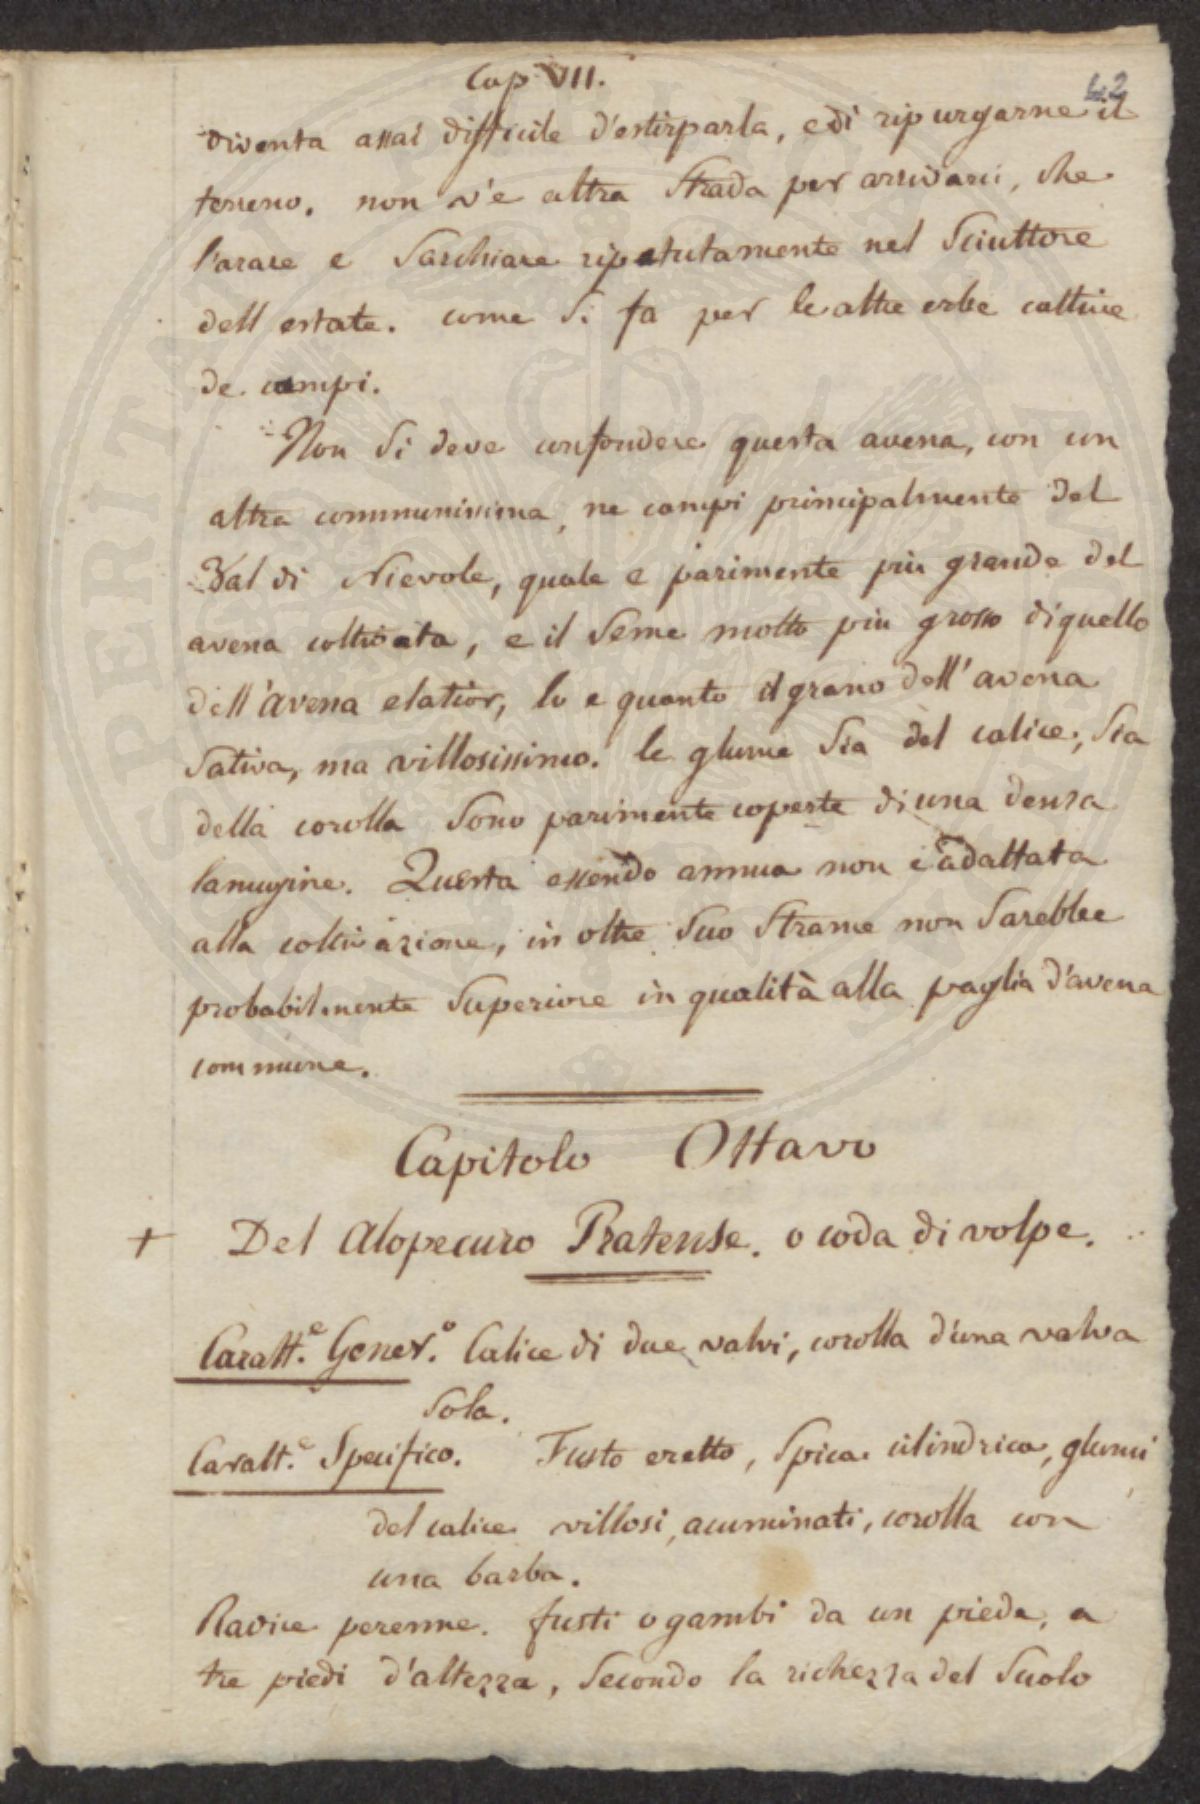 Cap VII.
42
diventa assai difficile d'estirparla, e di ripurgarne il
terreno. non v'e altra strada per arrivarci, che
l'arare e sarchiare ripetutamente nel sciuttore
dell estate. come si fa per le altre erbe cattive
de campi.
Non si deve confondere questa avena, con un
altra communissima, ne campi principalmente del
Val di Nievole, quale e parimente più grande del
avena coltivata, e il seme molto piu grosso di quello
dell'avena elatior, lo e quanto il grano dell'avena
sativa, ma villosissimo. le glume sia del calice, sia
della corolla sono parimente coperte di una densa
lanugine. Questa essendo annua non è adattata
alla coltivazione, in oltre suo strame non sarebbe
probabilmente superiore in qualità alla paglia d'avena
commune.
Capitolo Ottavo
+ Del Alopecuro Pratense. o coda di volpe.
Caratt.e Gener.o Calice di due valvi, corolla d'una valva
sola.
Caratt.e Specifico. Fusto eretto, spica cilindrica, glumi
del calice villosi, acuminati, corolla con
una barba.
Radice perenne. fusti o gambi da un piede, a
tre piedi d'altezza, secondo la richezza del suolo